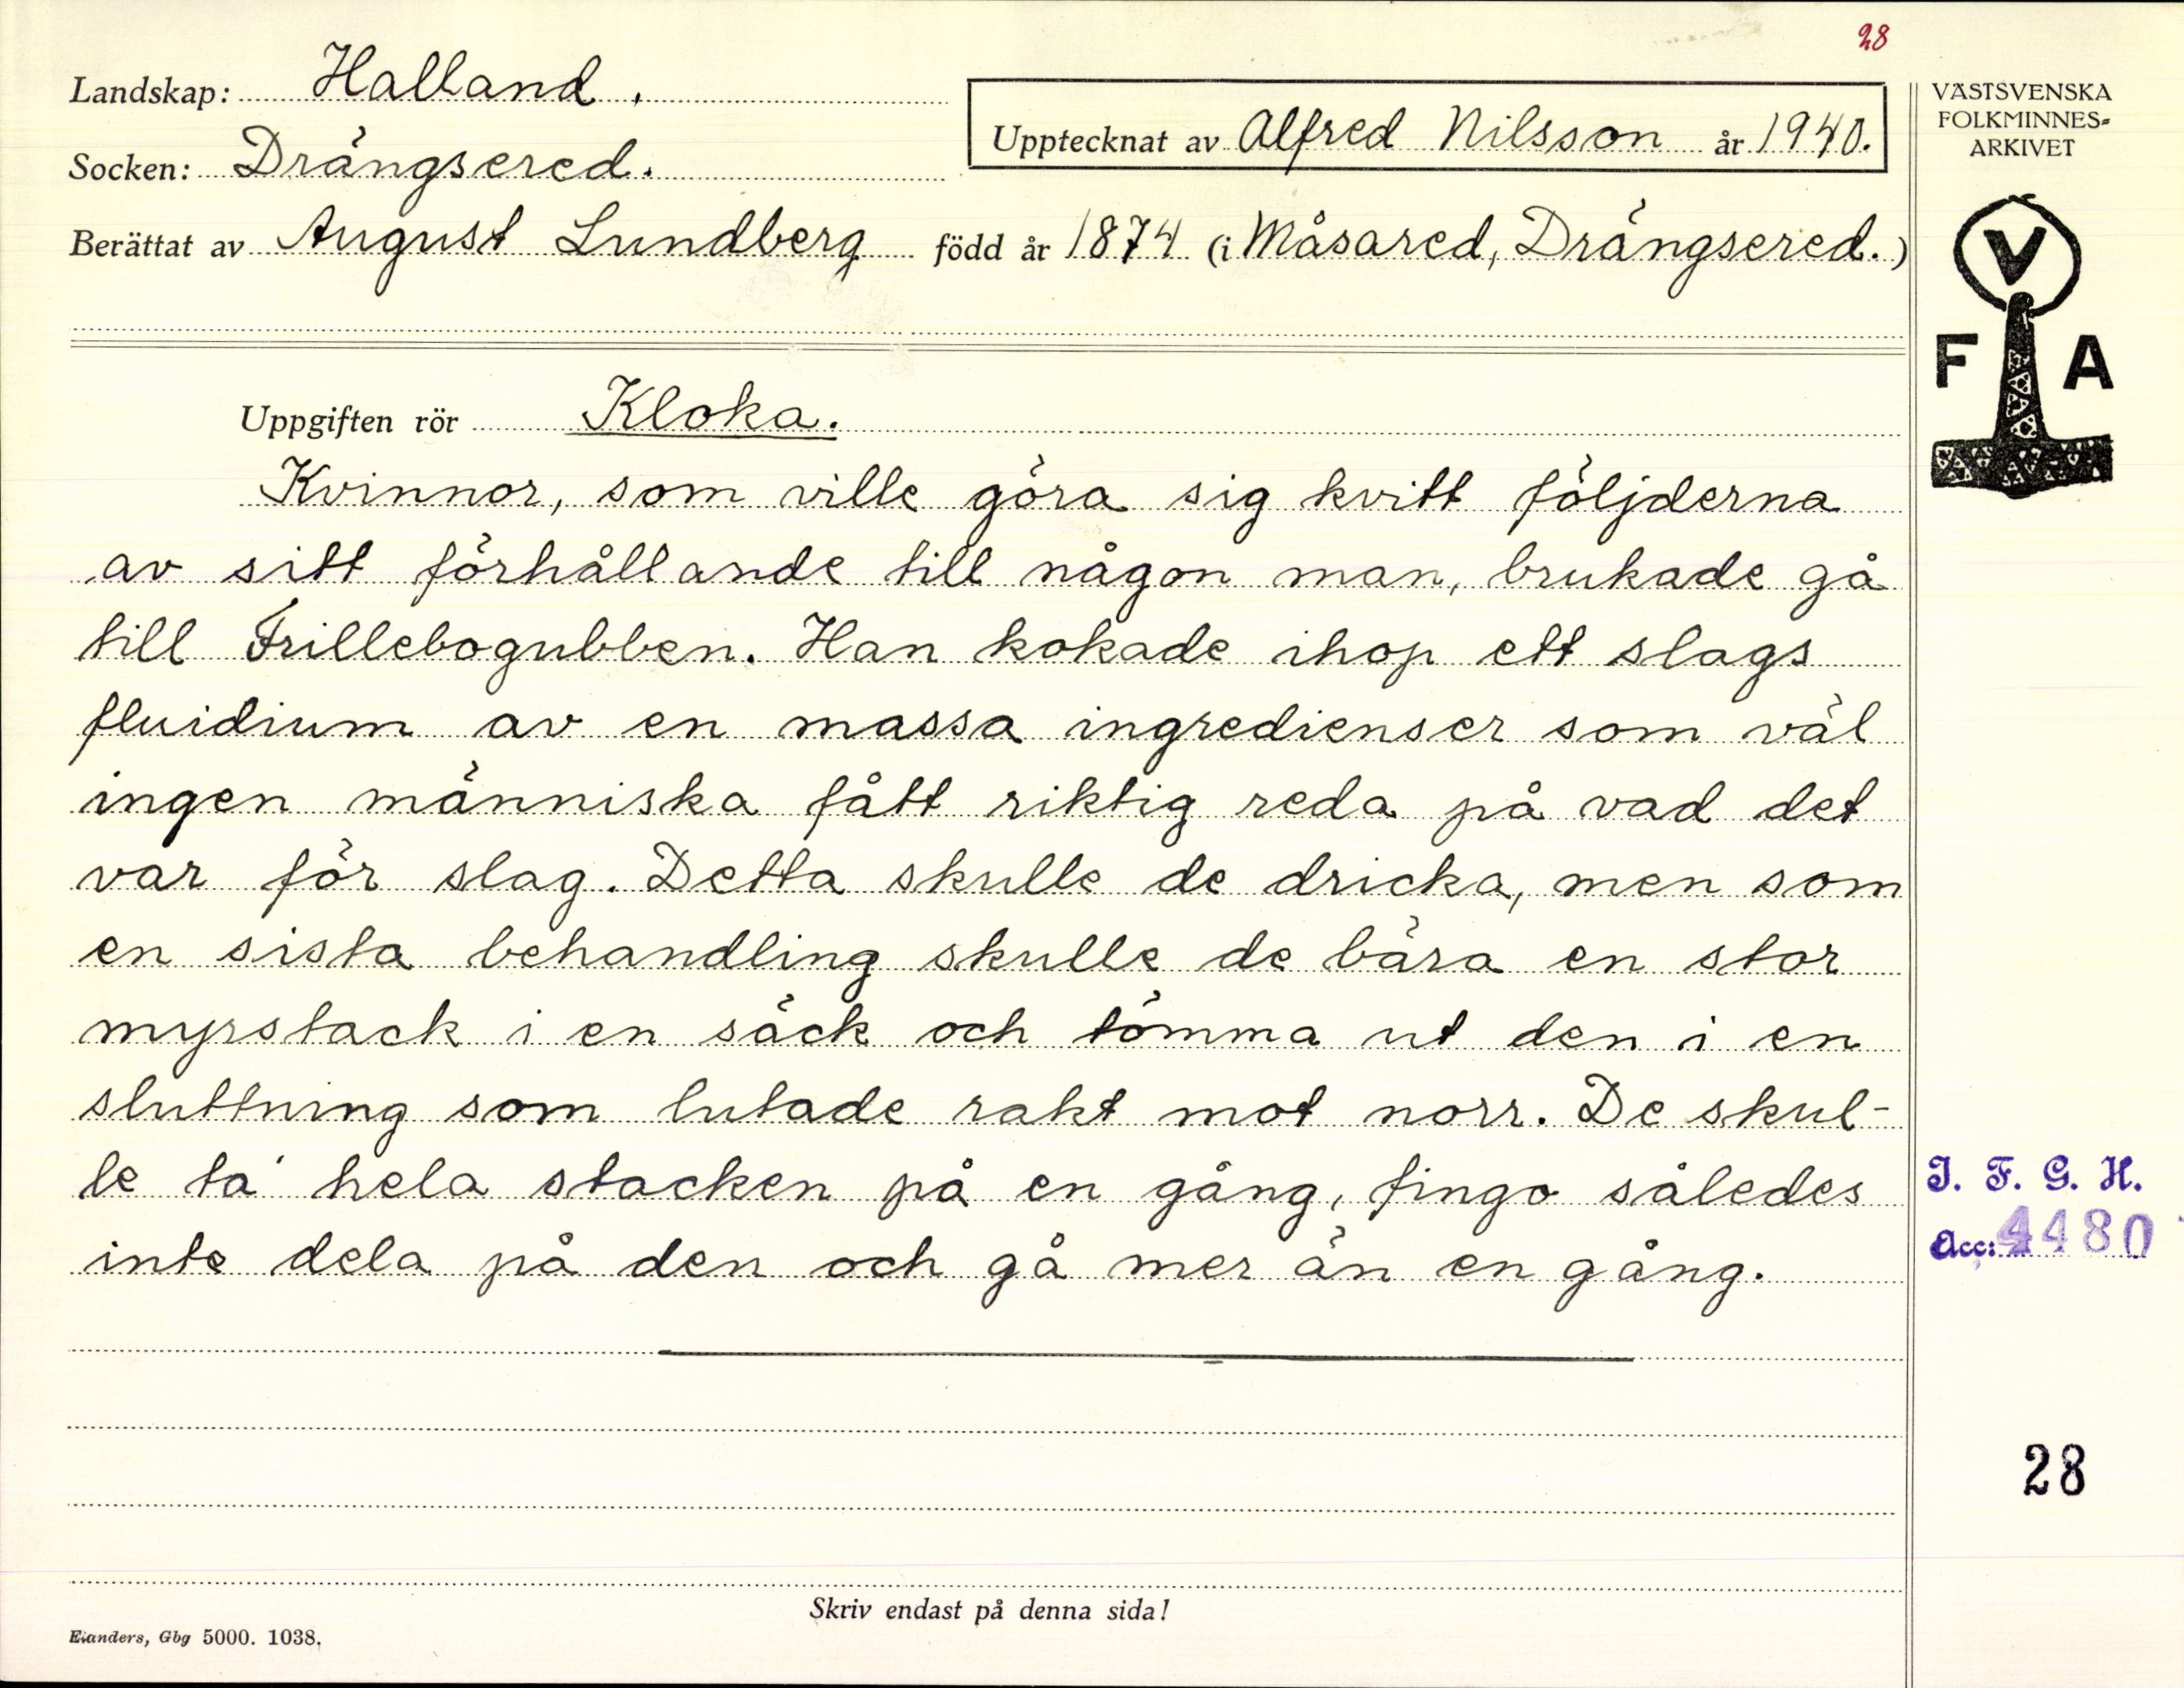 28
Landskap: Halland.
Upptecknat av Alfred Nilsson år 1940.
Socken: Drängsered.
Berättat av August Lundberg född år 1874 (i Måsared, Drängsered.)
VÄSTSVENSKA
FOLKMINNES-
ARKIVET
V
F A
Uppgiften rör Kloka.
Kvinnor, som ville göra sig kvitt följderna
av sitt förhållande till någon man, brukade gå
till Frillebogubben. Han kokade ihop ett slags
fluidium av en massa ingredienser som väl
ingen människa fått riktig reda på vad det
var för slag. Detta skulle de dricka, men som
en sista behandling skulle de bära en stor
myrstack i en säck och tömma ut den i en
sluttning som lutade rakt mot norr. De skul-
le ta' hela stacken på en gång, fingo således
inte dela på den och gå mer än en gång.
I. F. G. H.
Acc: 4480
28
Skriv endast på denna sida!
Elanders, Gbg 5000. 1038.